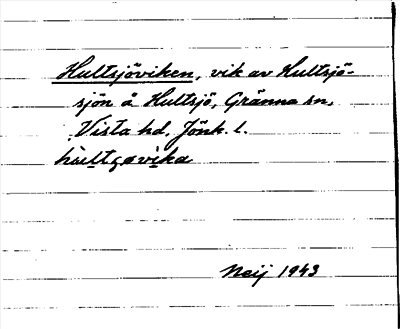 Hultsjöviken, vik av Hultsjö-
sjön å Hultsjö, Gränna sn,
Vista hd, Jönk. l.
hultgøvika
Neij 1943